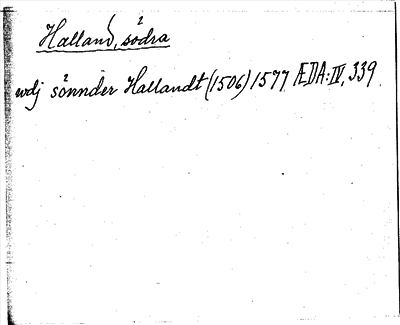 Halland, södra
udj sönnder Hallandt (1506) 1577 ÆDA:IV, 339